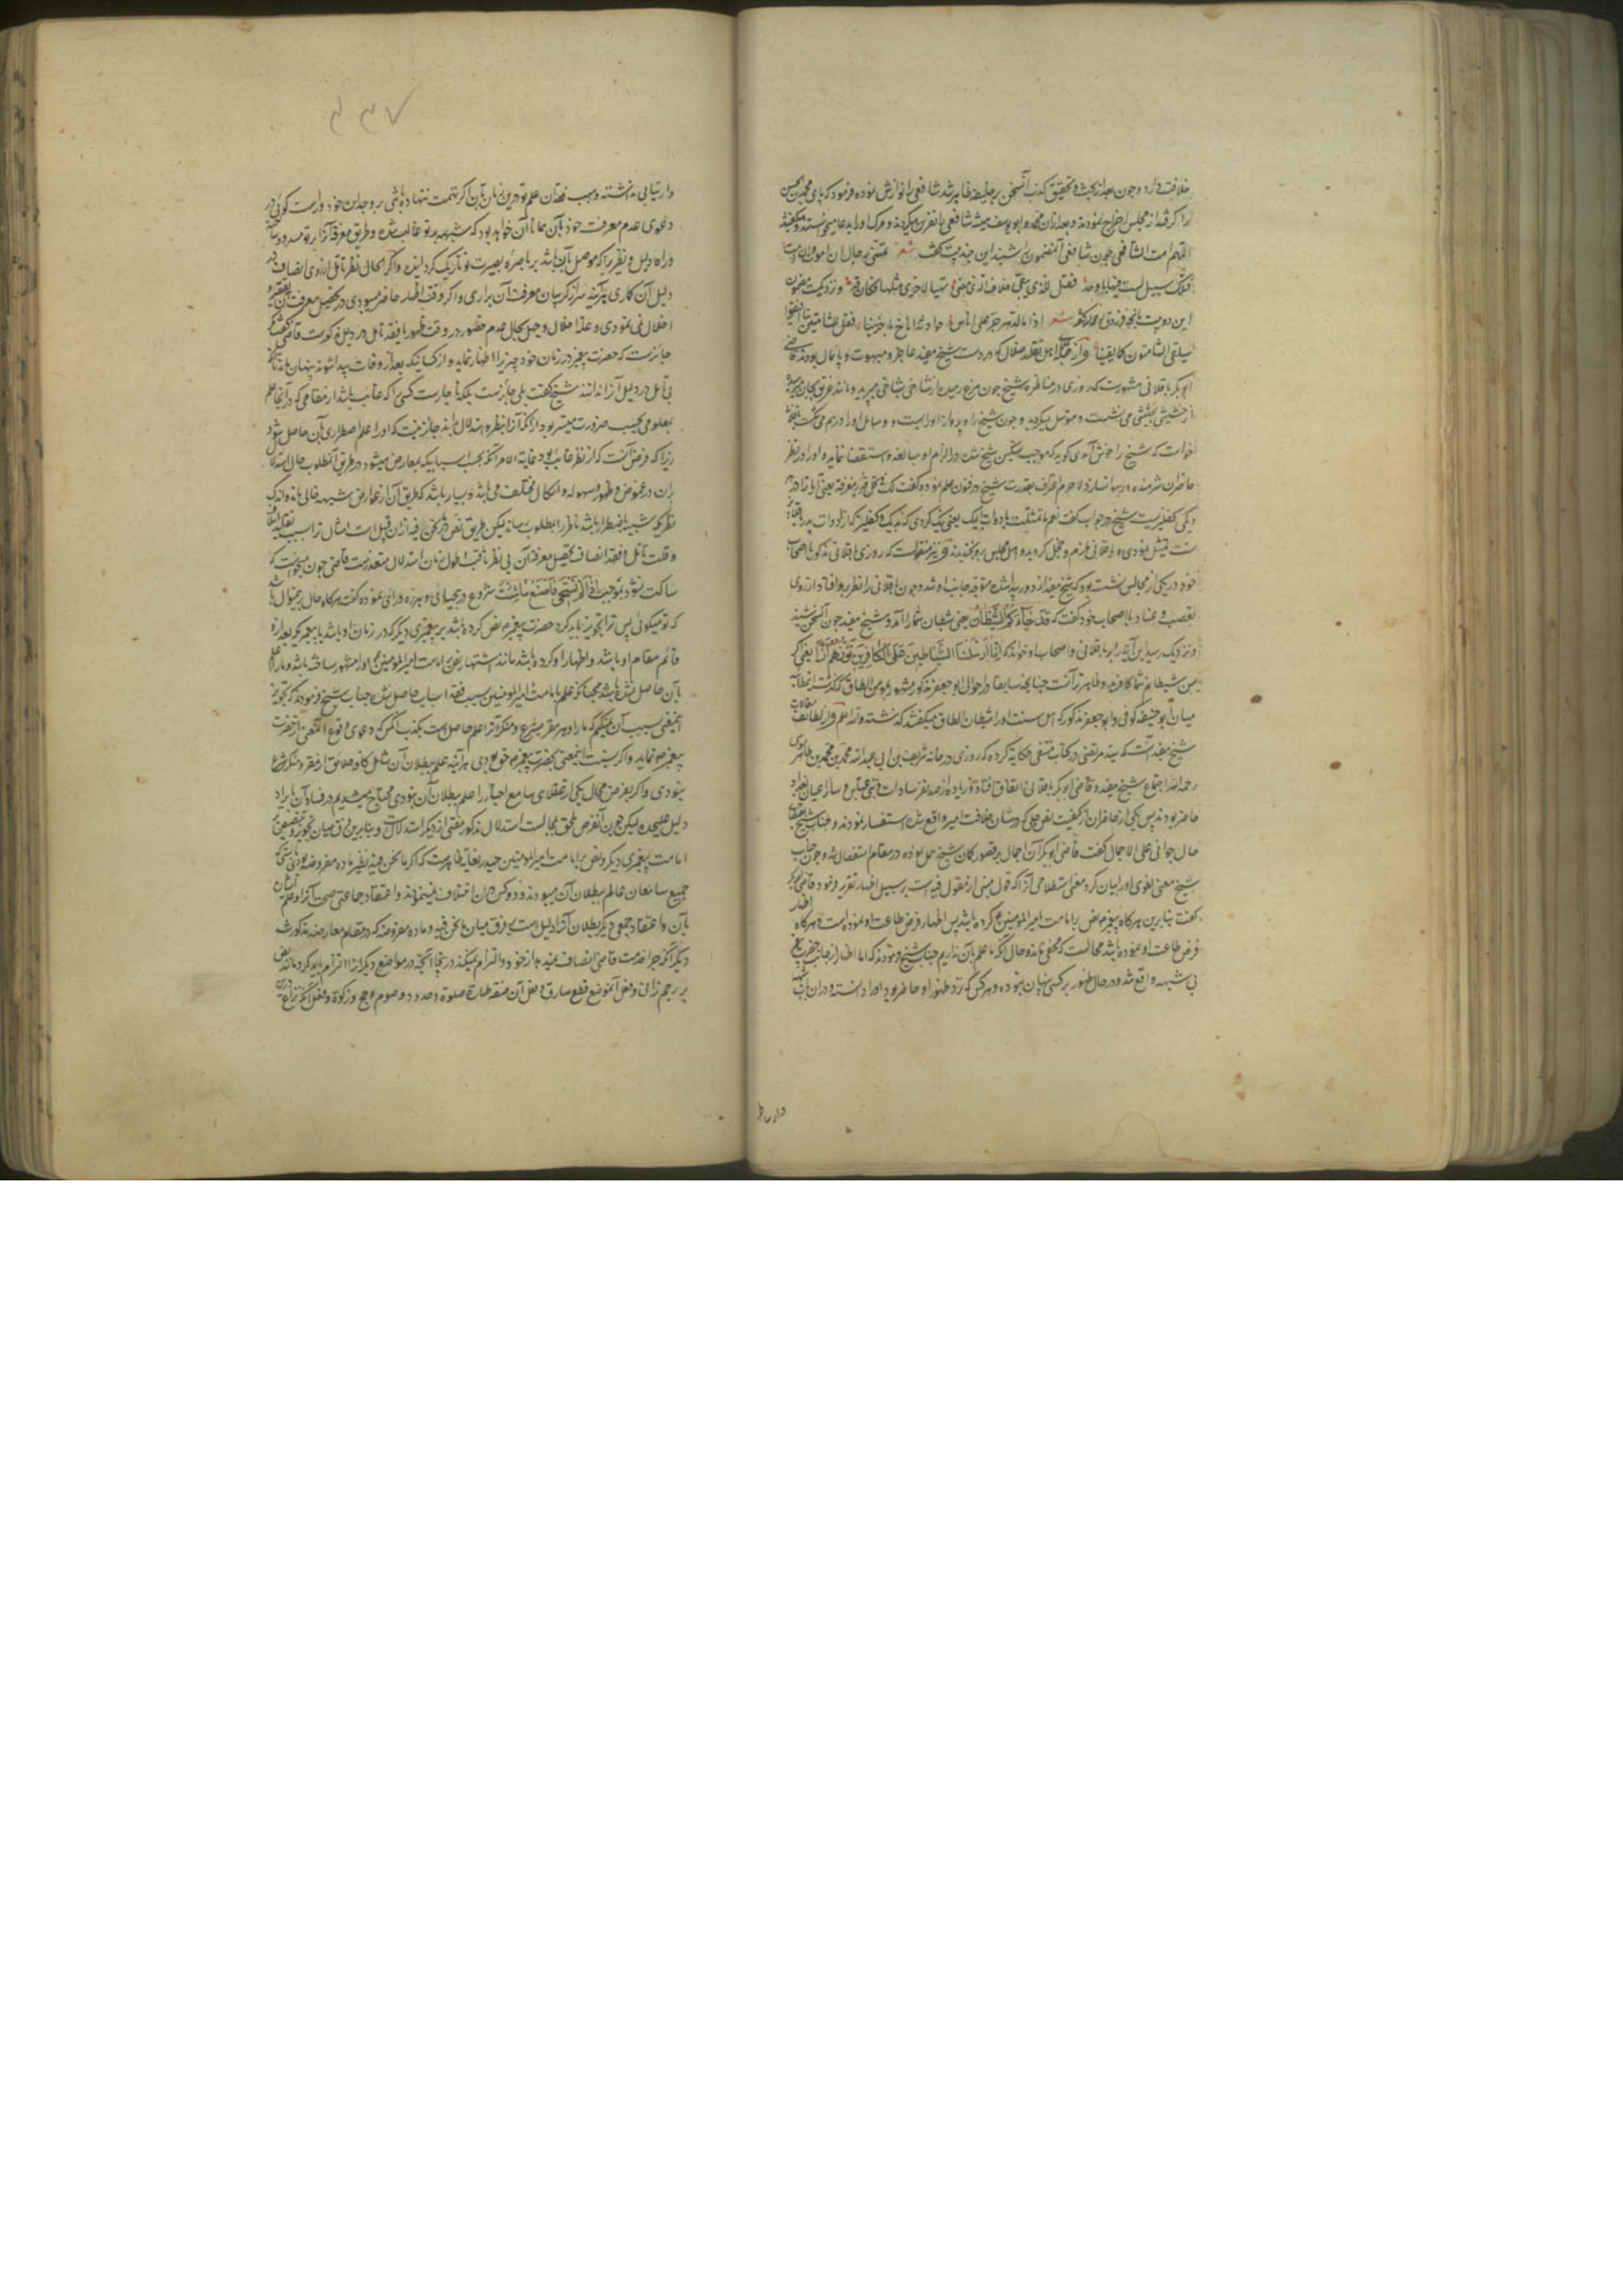 خلافت دارد و چون بعد از بحث و تحقیق کذب آن سخن بر خلیفه ظاهر شد شافعی را نوازش نموده فرمود که پای محمد بن الحسن
را گرفته از مجلس اخراج نمودند و بعد از آن محمد و ابو یوسف همیشه شافعی را نفرین میکردند و مرگ او را بدعا میخواستند و میگفتند
اللهم امت الشافعی چون شافعی آن مضمون را شنید این چند بیت گفت شعر تمنی رجال ان اموت وان امت
فتلک سبیل لست فیها باوحد فقل للذی یبغی خلاف الذی مضی تهیا لاخری مثلها فکان قد و نزدیکست بمضمون
این دو بیت آنچه فرزدق گفته شعر اذا ما الدهر جر علی اناس حوادثه اناخ باخرینا فقل للشامتین بنا افیقوا
سیلقی الشامتون کما لقینا و از جمله اهل تقلید و ضلال که در دست شیخ مفید عاجز و مبهوت و پایمال بودند قاضی
ابو بکر باقلانی مشهورست که روزی در مناظره شیخ چون مرغ رمیده از شاخی بشاخی میپرید و مانند غریق بیجان
از حشیشی بحشیشی می‌نشست و متوسل میگردید و چون شیخ راه پرواز او را بست و وسایل او را درهم می شکست
خواست که شیخ را خوش آمدی گوید که موجب تسکین شیخ شده در الزام او مبالغه و استقصا ننماید و او را در نظر
حاضران شرمنده و رسوا نسازد لاجرم اعتراف بقدرت شیخ در فنون علم نموده گفت لک فی کل قدر مغرفة یعنی آیا ترا در هر
دیگی کفلیزیست شیخ در جواب گفت نعم ما تمثلت بادوات ابیک یعنی نیک کردی که بدیک و کفلیز که از ادوات پدر باقلانی
تست تمثیل نمودی و باقلانی ملزم و خجل گردید و اهل مجلس برو بخندیدند و نیز منقولست که روزی باقلانی مذکور با اصحاب
خود در یکی از مجالس نشسته بود که شیخ مفید از دور پیدا شده متوجه جانب او شد و چون باقلانی را نظر برو افتاد از روی
تعصب و عناد با اصحاب خود گفت که قد جاءکم الشیطان یعنی شیطان شما را آمد و شیخ مفید چون آن سخن شنید
و نزدیک رسید این آیه را بر باقلانی و اصحاب او خواند که انا ارسلنا الشیاطین علی الکافرین تؤزهم ازا یعنی اگر
من شیطانم شما کافرید و ظاهر آنست چنانچه سابقا در احوال ابو جعفر مذکور مشهور بمؤمن الطاق گذشت
میان ابو حنیفه کوفی و ابو جعفر مذکور که اهل سنت او را شیطان الطاق میگفتند گذشته والله اعلم و از لطائف مقالات
شیخ مفید آنست که سید مرتضی در کتاب منتقی حکایة کرده که روزی در خانه شریف بن ابی عبدالله محمد بن محمد بن طاهر موسوی
رحمه الله اجتماع شیخ مفید و قاضی ابوبکر باقلانی اتفاق افتاد و زیاده از صد نفر سادات و بنی عباس و سایر اعیان بغداد
حاضر بودند پس یکی از حاضران از کیفیت نص جلی که در شان خلافت امیر واقع شده استفسار نمودند و جناب شیخ
حال جوابی علی الاجمال گفت قاضی ابوبکر آن اجمال بر قصور کلام شیخ حمل نموده در مقام استفصال شد و چون جناب
شیخ معنی لغوی او را بیان کرد معنی اصطلاحی آنرا که قول مبنی از مقول فیه است بر سبیل اظهار تقریر فرمود قاضی ابوبکر
گفت بنابرین هرگاه پیغمبر نص بر امامت امیر المومنین کرده باشد پس اظهار فرض طاعت او نموده است و هرگاه اظهار
فرض طاعت او نموده باشد محالست که مخفی ماند و حال آنکه ما علم بآن نداریم جناب شیخ فرمودند که اما اظهار از جانب حضرت پیغمبر
بی شبهه واقع شد و در حال ظهور بر کسی پنهان نبوده و هر کس که نزد ظهور او حاضر بود او را دانسته و در آن باب شبهه
۷۳۴
وارتیابی نداشته و سبب فقدان علم تو درین زمان بآن اگر تهمت ننهاده باشی بر وجدان خود و راست گویی در
دعوی عدم معرفت خود بآن همانا آن خواهد بود که شبهه بر تو غالب شده و طریق معرفة آنرا بر تو مسدود ساخته
و راه دلیل و نظریرا که موصل بآن باشد بر باصره بصیرت تو تاریک گردانیده و اگر بحال نظر و تامل از روی انصاف در
دلیل آن کاری برآیند سر از گریبان معرفت آن برآری و اگر وقت اظهار حاضر میبودی در تحصیل معرفت آن تقصیر و
اخلال نمی نمودی و عذر اخلال و جهل بحال عدم حضور در وقت ظهور یا فقد تامل در دلیل مذکورست قاضی گفت که
جائزست که حضرت پیغمبر در زمان خود چیزیرا اظهار نماید و از کسانیکه بعد از وفات پیدا شوند پنهان ماند تا آنکه
بی تامل در دلیل آنرا ندانند شیخ گفت بلی جایزست بلکه ناچارست کسی را که غائب باشد از مقامی که در آنجا علم
بمعلومی بحسب ضرورت میسر بود از آنکه آنرا بنظر و استدلال داند و جائز نیست که او را علم اضطراری بآن حاصل شود
زیرا که فرض آنست که از نظر غائب بود غایة الامر آنکه بحسب اسبابیکه معارض میشود در طریق آن مطلوب حال استدلال
بران در غموض و ظهور و سهوله و اشکال مختلف می‌باشد و بسیار باشد که طریق آن از معارض شبهه خالی ماند و اندک
نظریکه شبیه باضطرار باشد ناظر را بمطلوب رساند لیکن طریق نص در ما نحن فیه ازان قبیل است امثال ترا بسبب تقلید اسلاف
و قلت تامل و فقد انصاف تحصیل معرفة آن بی نظر ثاقب و طول زمان استدلال متعذرست قاضی چون میخواست که
ساکت نشود بموجب اذا لم تستحی فاصنع ما شئت شروع در بیحیائی و هرزه درای نموده گفت هرگاه حال برینمنوال باشد
که تو میگوئی پس ترا تجویز باید کرد حضرت پیغمبر نص کرده باشد بر پیغمبری دیگر که در زمان او باشد یا پیغمبریکه بعد ازو
قائم مقام او باشد و اظهار او کرده باشد مانند اشتهار نص بر امامت امیر المؤمنین و او را مشهور ساخته باشد و ما را علم
بآن حاصل نشده باشد همچنانکه علم بامامت امیر المومنین بسبب فقد اسباب حاصل نشده جناب شیخ فرمودند که تجویز
اینمعنی بسبب آن نمیکنم که ما را و هر مقر بشرع و منکر آنرا علم حاصل است بکذب آنکس که دعوای وقوع آن نص از حضرت
پیغمبر نماید و اگر نسبت اینمعنی بحضرت پیغمبر حق بودی هرآینه علم ببطلان آن شامل کافه خلائق از مقر و منکر شرع
نبودی و اگر بفرض محال یکی از عقلای سامع اخبار را علم ببطلان آن نبودی محتاج میشدیم در فساد آن بایراد
دلیل علیحده لیکن چون آن فرض ملحق بمحالست استدلال مذکور مغنی از دیگر استدلالات و بنابرین فرق میان تجویز تنصیص بر
امامت پیغمبری دیگر و نص بر امامت امیر المومنین حیدر بغایة ظاهرست که اگر ما نحن فیه نظیر ماده مفروضه بودی بایستی که
جمیع سامعان عالم ببطلان آن میبودند و دو کس در آن اختلاف نمینمودند و اعتقاد جماعتی بصحت آن و علم ایشان
بآن و اعتقاد جمعی دیگر ببطلان آنرا دلیل است بر فرق میان ما نحن فیه و ماده مفروضه که در مقام معارضه مذکور شد
دیگر آنکه چرا حضرت قاضی انصاف نمیدهد از خود و التزام نمیکند در اینجا آنچه در مواضع دیگر آنرا التزام باید کرد مانند نص
بر رجم زانی و فعل آن موضع قطع سارق و فعل آن صفة طهارة و صلوة و حدود و صوم و حج و زکوة و فعل آن که نزاع درین